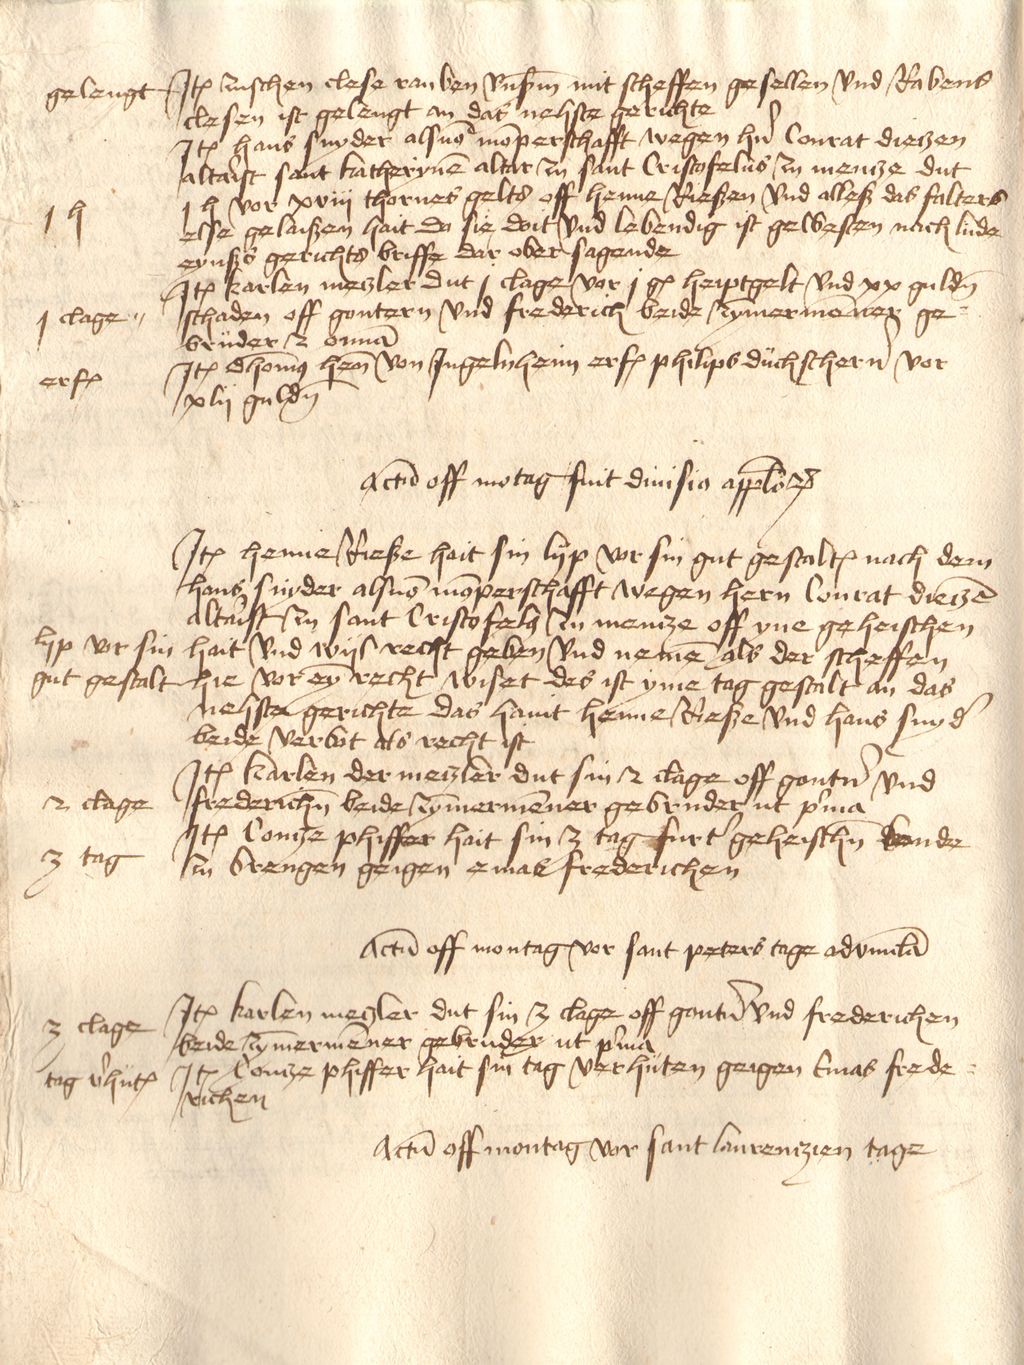 gelengt Itʒ zuschen clese rauben unßm mit scheffen gesellen und Rabens
clesen ist gelengt an das nehste gerichte
Itʒ hans snyder als momperschafft wegen hern Conrat dieczen
altarist sant katherynen altar zu sant Cristofelus zu mencze dut
1 h 1 h vor xviij thornes gelts off henne Rießen und alleß das falters
else gelaißen hait do sie doit und lebendig ist gewesten nach lude
eynßs gerichts briffe dar ober sagende
Itʒ karlen meczler dut j clage vor j gʒ heiptgelt und xx guldn
j clage schaden off gontern und frederich beide zymermenner ge=
bruder z omna
erfʒ Itʒ Thomas hen von Ingelnheim erfʒ philips duchscherer vor
xlij guldn
Actu off motag fuit divisio applorʒ
Itʒ henne Rieße hait sin lyp vor sin gut gestaltʒ nach dem
hans snyder als momperschafft wegen hern Conrat diecze
altarist zu sant Cristofels zu mencze off yne geheischen
lyp vor sin hait und wijl recht geben und neme als der scheffen
gut gestalt hie vor ey recht wiset des ist yme tag gestalt an das
nehste gerichte das hant henne Rieße und hans snyd
beide verbot als recht ist
Itʒ karlen der meczler dut sin 2 clage off gontn und
2 clage frederichn beide zymermenner gebruder ut pma
Itʒ Concze phiffer hait sin 3 tag furt geheischn konde
3 tag zu brengen geigen emas frederichen
Actu off montag vor sant peters tage advincla
Itʒ karlen meczler dut sin 3 clage off gontn und frederichen
3 clage beide zymermenner gebruder ut pma
tag vhutʒ Itʒ Concze phiffer hait sin tag verhuten geigen Emas frede=
richen
Actu off montag vor sant laurenczien tage